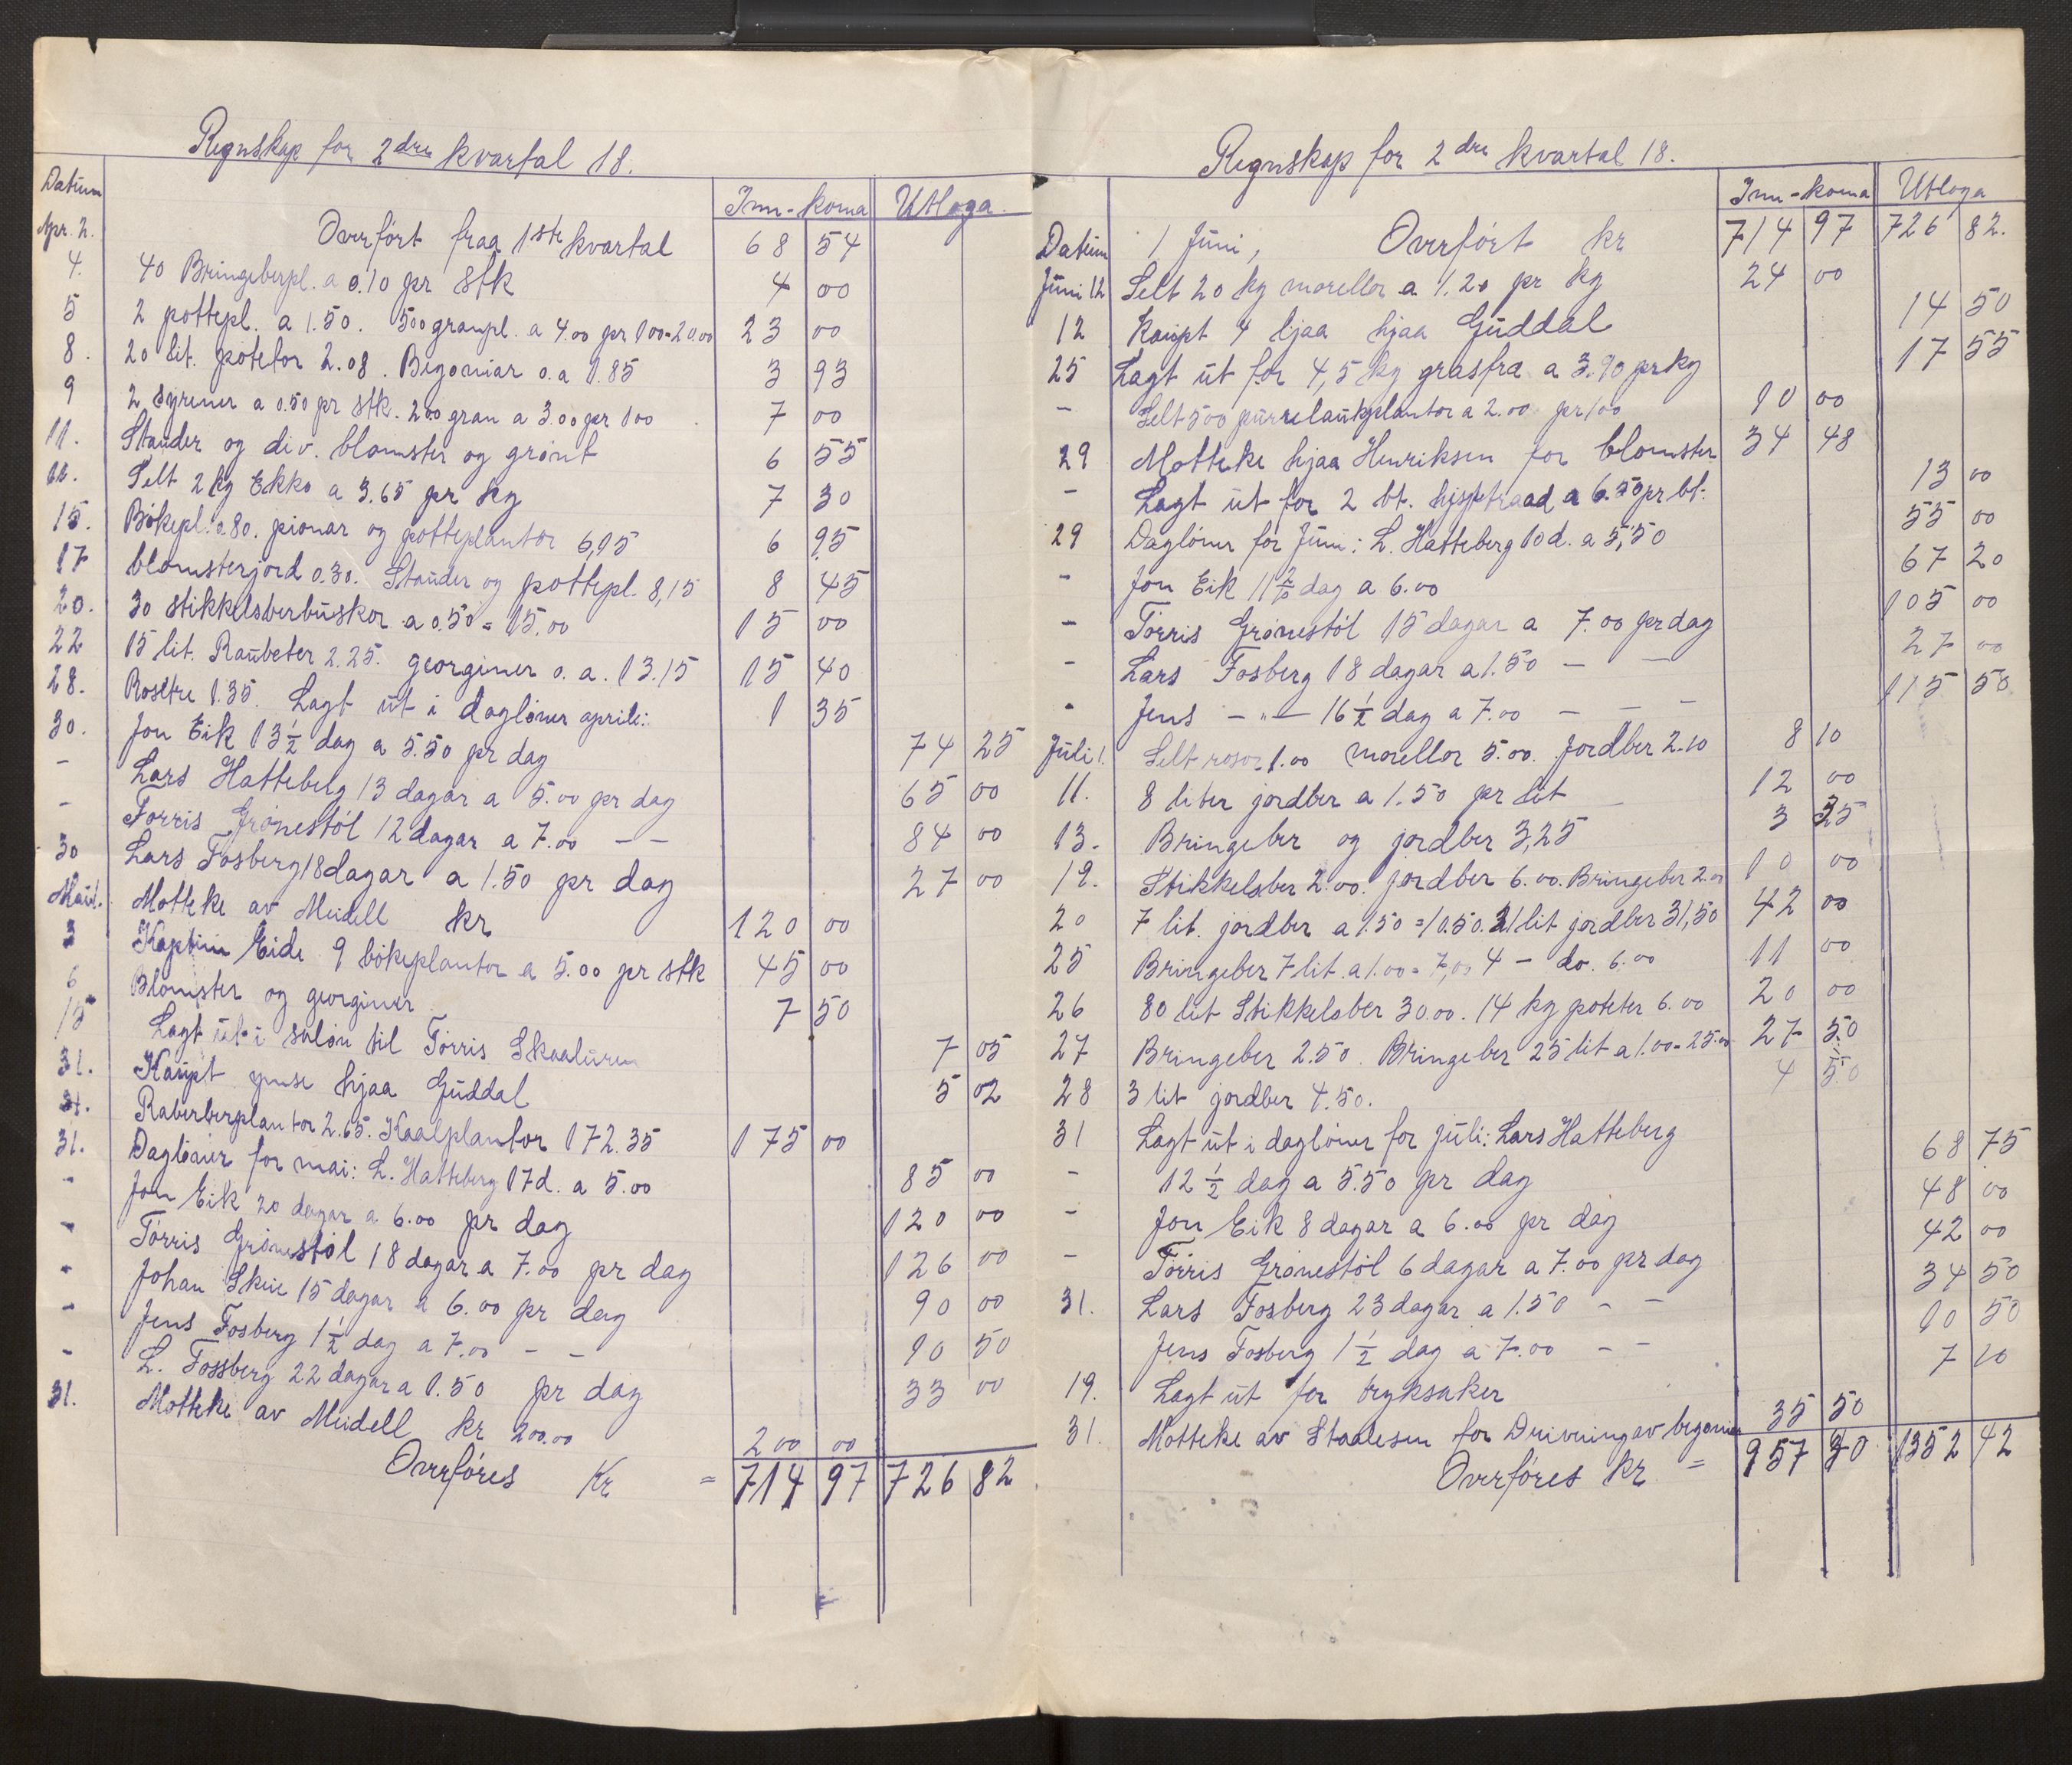 Regnskap for 2dre kvartal 18.
Datum Inn-koma Utloga
Apr. 2. Overført fraa 1ste kvartal 68 54
4. 40 Bringeberpl. a 0.10 pr stk 4 00
5 2 pottepl. a 1.50. 500 granpl. a 4.00 pr 100=20.00 23 00
8. 20 lit. poteter 2.08. Begoniar o.a 1.85 3 93
9 2 Syrener a 0.50 pr stk. 200 gran a 3.00 pr 100 7 00
11. Stauder og div. blomster og grønt 6 55
12. Selt 2 kg Ekko a 3.65 pr kg 7 30
15. Bøkepl. 0.80. pionar og potteplantor 6,15 6 95
17 blomsterjord 0.30. Stauder og pottepl. 8,15 8 45
20. 30 stikkelsberbuskor a 0.50 = 15,00 15 00
22 15 lit. Raubeter 2.25. georginer o. a. 13.15 15 40
28. Rosetre 1.35. Lagt ut i dagløner april: 1 35
30. Jon Eik 13 1/2 dag a 5.50 pr dag 74 25
- Lars Hatteberg 13 dagar a 5.00 pr dag 65 00
- Torris Grønestøl 12 dagar a 7.00 - - 84 00
30 Lars Fosberg 18 dagar a 1.50 pr dag 27 00
Mai 1. Motteke av Meidell kr 120 00
3 Kaptein Eide 9 bøkeplantor a 5.00 pr stk 45 00
6 Blomster og georginer 7 50
15 Lagt ut i saløn til Torris Skaaluren 7 05
31. Kaupt ymse hjaa Guddal 5 02
31. Raberberplantor 2.65. Kaalplantor 172.35 175 00
31. Dagløner for mai: L. Hatteberg 17 d. a 5.00 85 00
- Jon Eik 20 dagar a 6.00 pr dag 120 00
- Torris Grønestøl 18 dagar a 7.00 pr dag 126 00
- Johan Skeie 15 dagar a 6.00 pr dag 90 00
- Jens Fosberg 1 1/2 dag a 7.00 - - 10 50
- L. Fossberg 22 dagar a 1.50 pr dag 33 00
31. Motteke av Meidell kr 200.00 200 00
Overføres Kr = 714 97 726 82
Regnskap for 2dre kvartal 18.
Inn-koma Utloga
Datum 1 Juni, Overført kr 714 97 726 82.
Juni 12 Selt 20 kg morellor a 1.20 pr kg 24 00
12 Kaupt 4 ljaa hjaa Guddal 14 50
25 Lagt ut for 4,5 kg grasfrø a 3.90 pr kg 17 55
- Selt 500 purrelaukplantor a 2.00 pr 100 10 00
29 Motteke hjaa Henriksen for blomster 34 48
- Lagt ut for 2 bt. a 6.50 pr bt: 13 00
29 Dagløner for Juni: L. Hatteberg 10 d. a 5,50 55 00
- Jon Eik 11 2/10 dag a 6.00 67 20
- Torris Grønestøl 15 dagar a 7.00 pr dag 105 00
- Lars Fosberg 18 dagar a 1.50 - - 27 00
- Jens -„- 16 1/2 dag a 7.00 - - - 115 50
Juli 1. Selt rosor 1.00 morellor 5.00. Jordber 2.10 8 10
11. 8 liter jordber a 1.50 pr lit 12 00
13. Bringeber og jordber 3,25 3 25
19. Stikkelsber 2.00. jordber 6.00. Bringeber 2.00 10 00
20 7 lit. jordber a 1.50 = 10.50. 21 lit jordber 31,50 42 00
25 Bringeber 7 lit. a 1.00 = 7,00 4 - do. 6.00 11 00
26 80 lit Stikkelsber 30.00. 14 kg poteter 6.00 20 00
27 Bringeber 2.50. Bringeber 25 lit a 1.00 = 25.00 27 50
28 3 lit jordber 4.50. 4 50
31 Lagt ut i dagløner for juli: Lars Hatteberg
- 12 1/2 dag a 5.50 pr dag 68 75
- Jon Eik 8 dagar a 6.00 pr dag 48 00
- Torris Grønestøl 6 dagar a 7.00 pr dag 42 00
31. Lars Fosberg 23 dagar a 1.50 - - 34 50
Jens Fosberg 1 1/2 dag a 7.00 - - 10 50
19. Lagt ut for tryksaker 7 10
31. Motteke av Staalesen for Drivning av begonier 35 50
Overføres kr = 957 30 1352 42